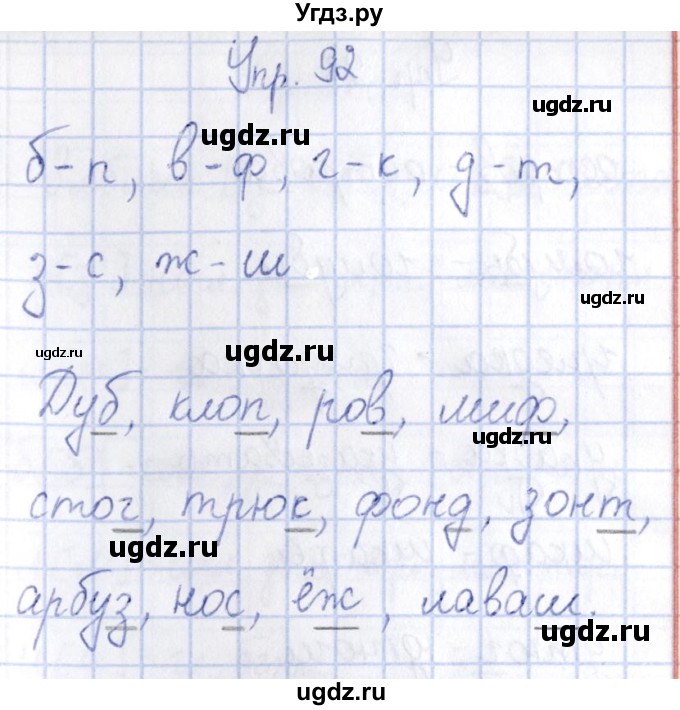 Угдз.ру
Упр. 92
ugdz.ru
ugdz.ru
б-п, в-ф, г-к, д-т,
ugdz.ru
з-с, ж-ш
ugdz.ru
ugdz.ru
ugdz.ru
Дуб, клоп, ров, миф,
ugdz.ru
стог, трюк, фонд, зонт,
ugdz.ru
арбуз, нос, ёж, лаваш.
ugdz.ru
ugdz.ru